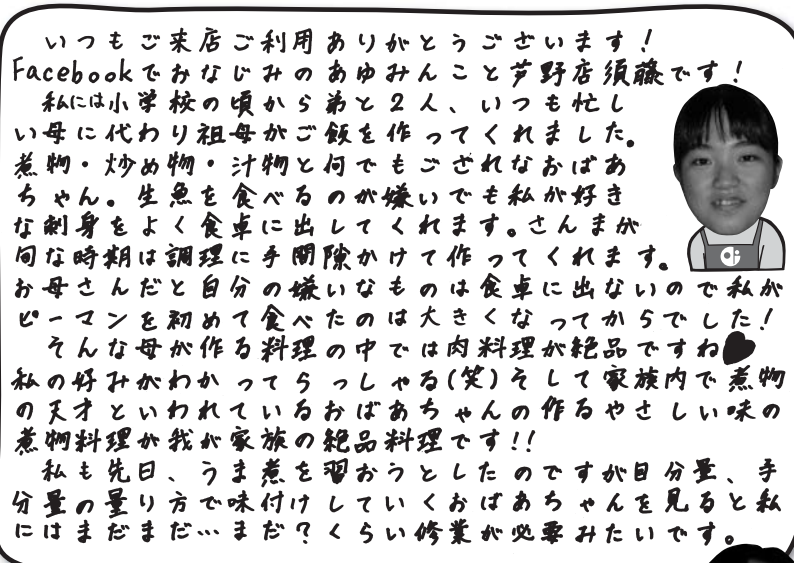 いつもご来店ご利用ありがとうございます!
Facebookでおなじみのあゆみんこと芦野店須藤です!
私には小学校の頃から弟と2人、いつも忙し
い母に代わり祖母がご飯を作ってくれました。
煮物・炒め物・汁物と何でもござれなおばあ
ちゃん。生魚を食べるのが嫌いでも私が好き
な刺身をよく食卓に出してくれます。さんまが
旬な時期は調理に手間隙かけて作ってくれます。
お母さんだと自分の嫌いなものは食卓に出ないので私が
ピーマンを初めて食べたのは大きくなってからでした!
そんな母が作る料理の中では肉料理が絶品ですね
私の好みがわかってらっしゃる(笑)そして家族内で煮物
の天才といわれているおばあちゃんの作るやさしい味の
煮物料理が我が家族の絶品料理です!!
私も先日、うま煮を習おうとしたのですが目分量、手
分量の量り方で味付けしていくおばあちゃんを見ると私
にはまだまだ…まだ?くらい修業が必要みたいです。